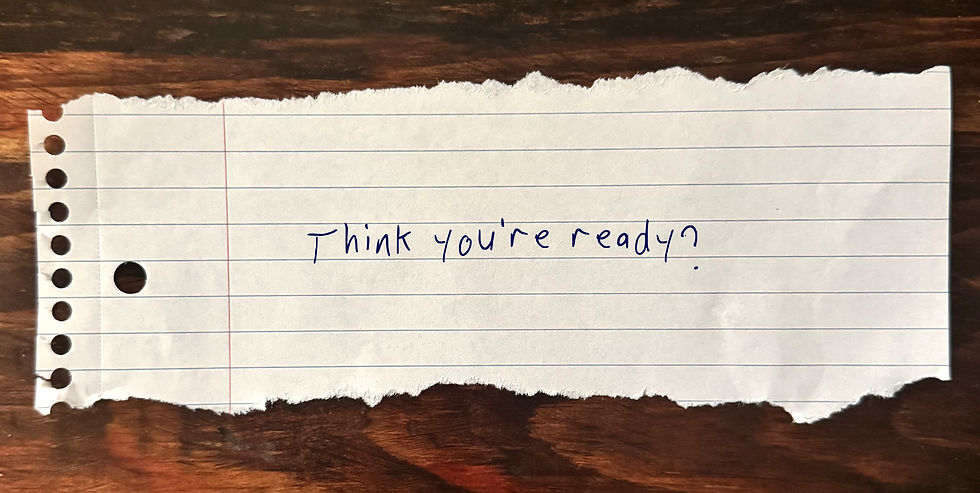 Think you're ready?